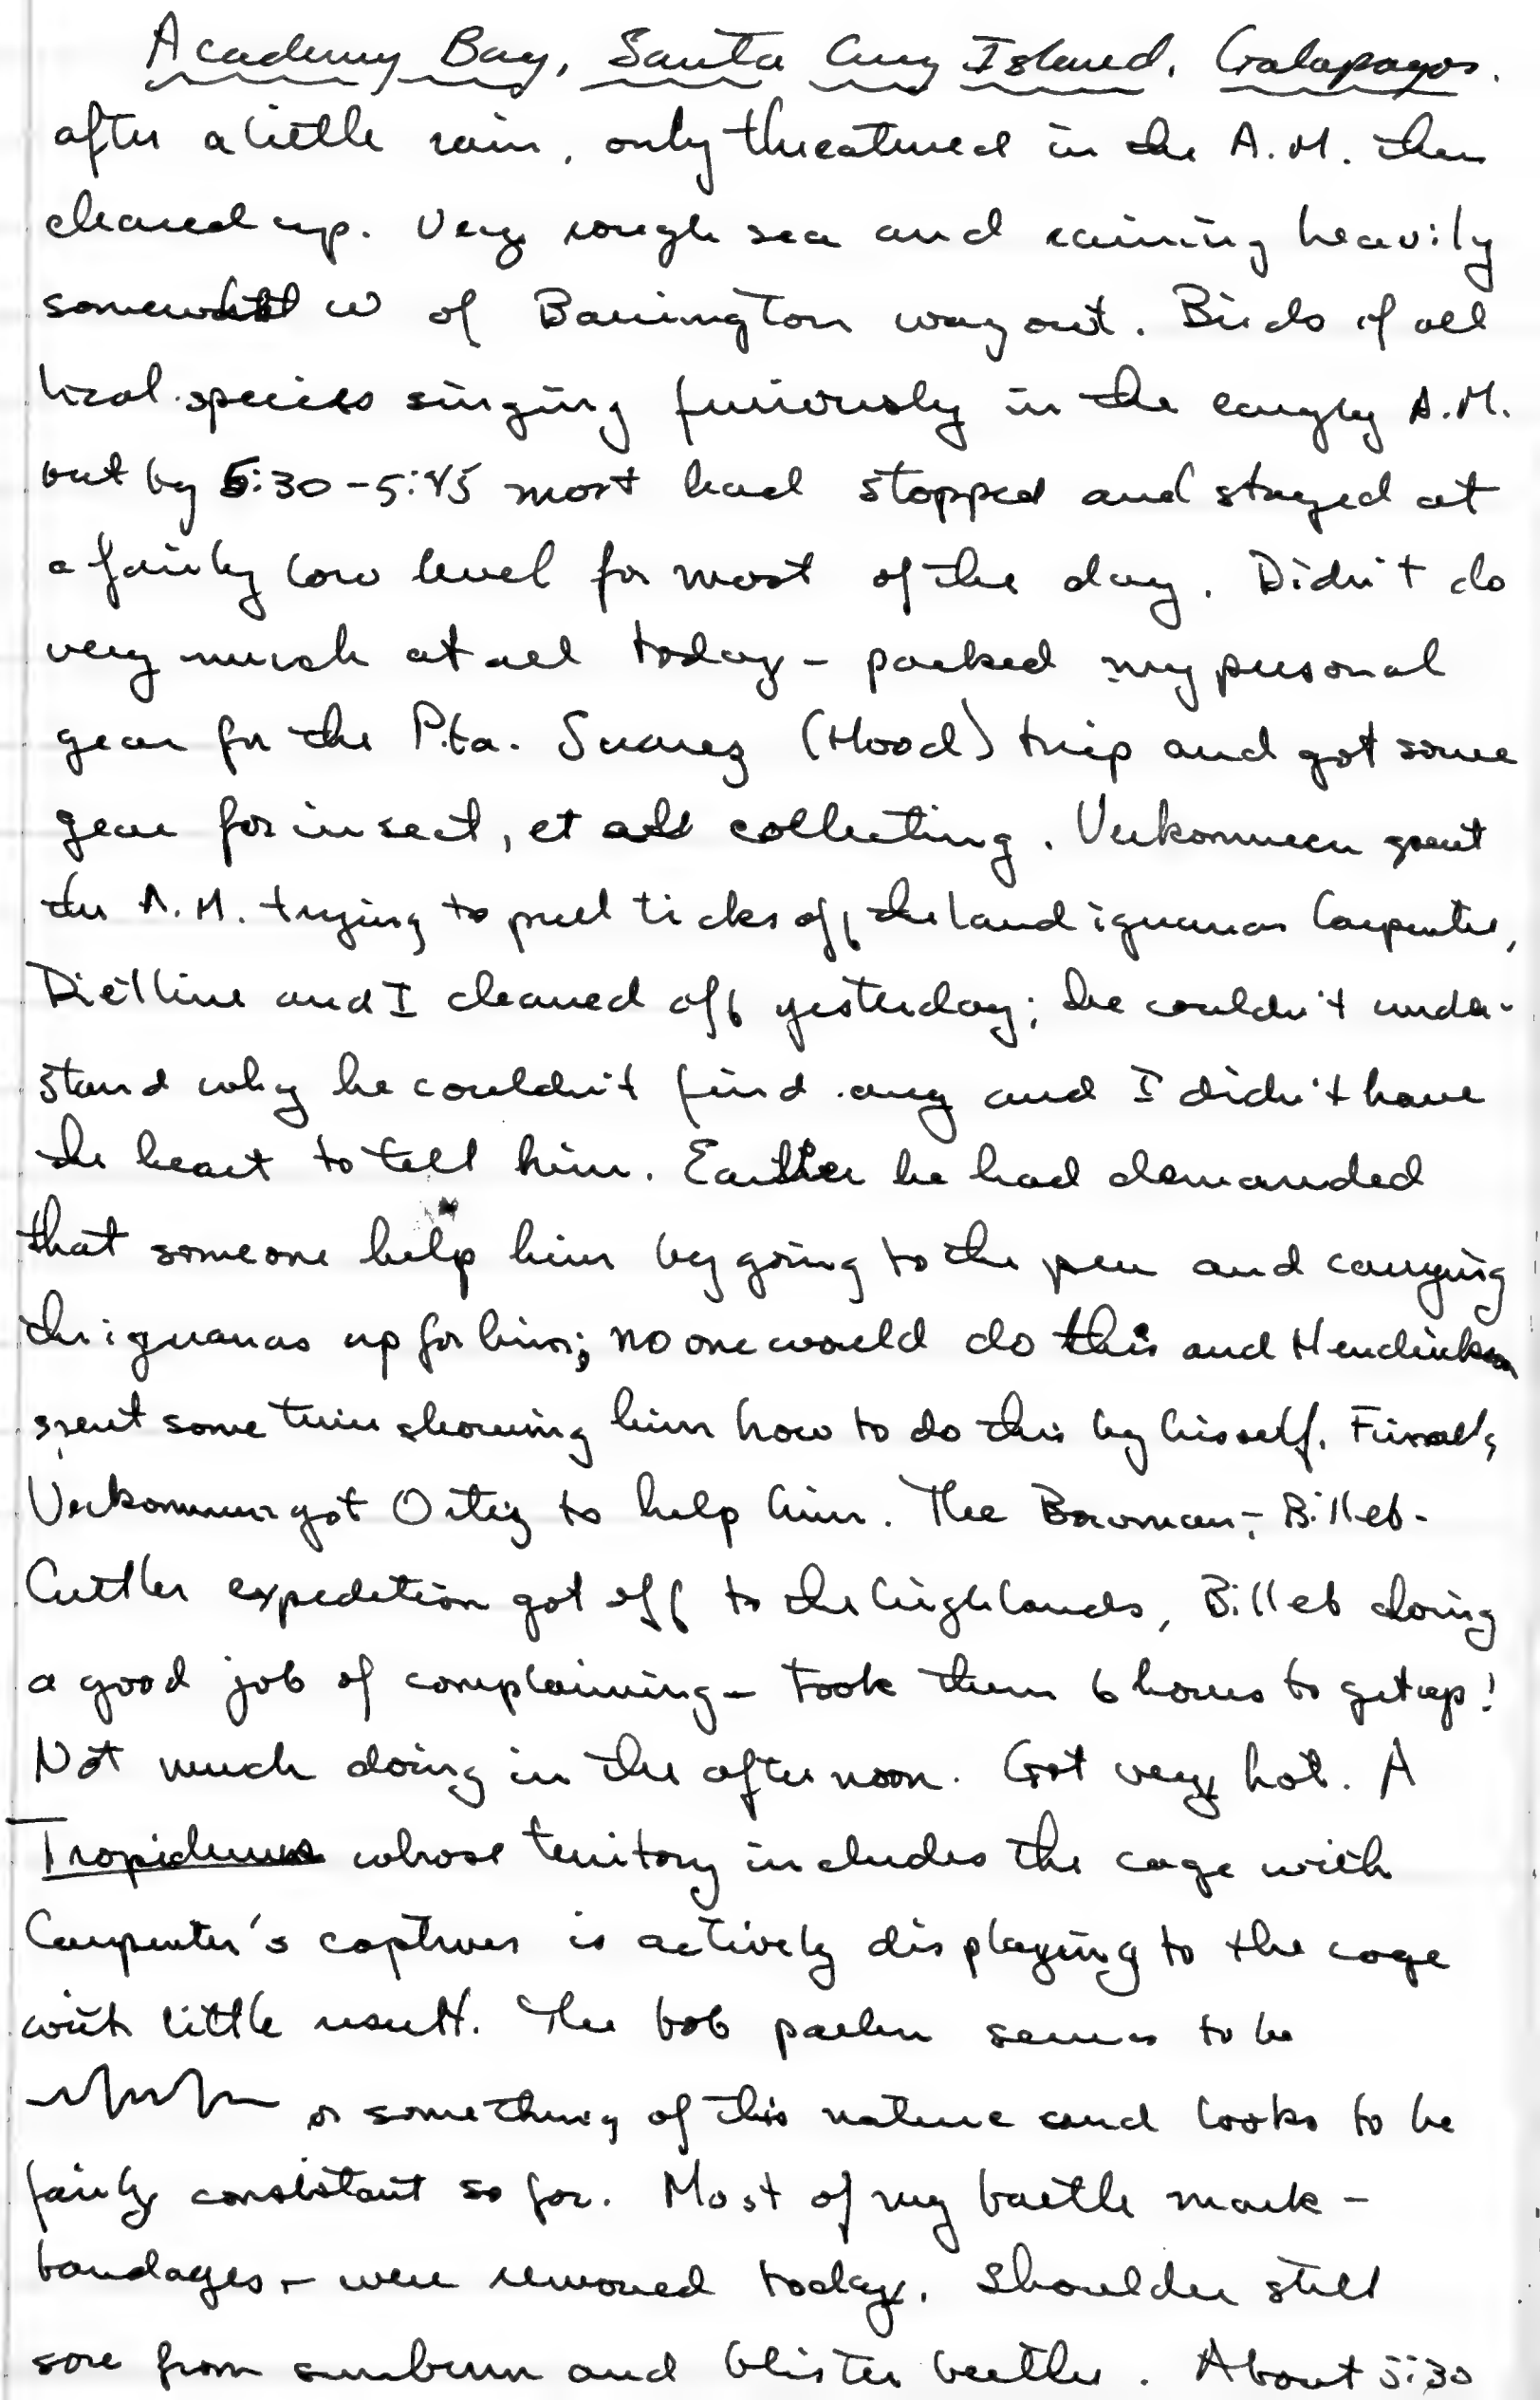 Academy Bay, Santa Cruz Island, Galapagos.
after a little rain, only threatened in the A.M. then
cleared up. Very rough sea and raining heavily
somewhat W of Barrington way out. Birds of all
local species singing furiously in the early A.M.
but by 5:30-5:45 most had stopped and stayed at
a fairly low level for most of the day. Didn't do
very much at all today - packed my personal
gear for the Pta. Suarez (Hood) trip and got some
gear for insect, et all collecting. Verkommeen spent
the A.M. trying to pull ticks off the land iguanas Carpenter,
Dietlline and I cleaned off yesterday; he couldn't under-
stand why he couldn't find any and I didn't have
the heart to tell him. Earlier he had demanded
that someone help him by going to the pen and carrying
the iguanas up for him; no one would do this and Hendrickson
spent some time showing him how to do this by hisself. Finally
Verkommen got Ortiz to help him. The Bowman-Billeb-
Cuttler expedition got off to the highlands, Billeb doing
a good job of complaining - took them 6 hours to get up!
Not much doing in the afternoon. Got very hot. A
Tropidurus whose territory includes the cage with
Carpenter's captives is actively displaying to the cage
with little result. The bob pattern seems to be
or something of this nature and looks to be
fairly consistant so far. Most of my battle mark -
bandages - were removed today. Shoulder still
sore from sunburn and blister beetles. About 5:30